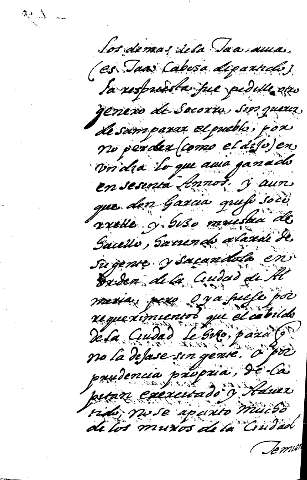 los demas de la Taa, aun a.
(es Taa, Cabeza de partido)
la respuesta fue pedille otro
genero de Socorro, sin querer
desamparar el pueblo, por
no perder (como el dijo) en
un dia lo que avia ganado
en sesenta Annos, y aun
que don Garcia quiso soco
rrelle y hizo muestra de
hacello, haciendo alarde de
su gente y sacandola en
orden de la Ciudad de Al
meria, pero o ya fuese por
requerimiento que el cabildo
de la Ciudad le hizo para q
no la dejase sin gente, o por
prudencia propria, de Ca
pitan exercitado y Adver
tido, no se aparto mucho
de los muros de la Ciudad
Temi